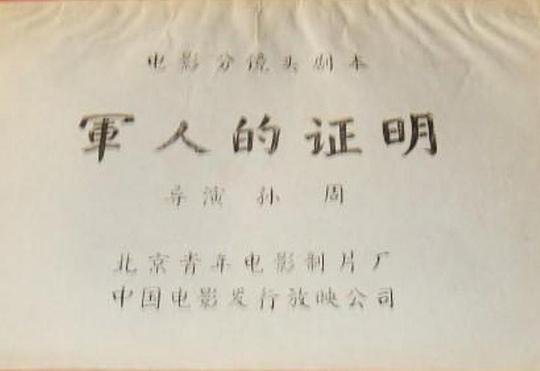 电影分镜头剧本
軍人的证明
导演 孙 周
北京青年电影制片厂
中国电影发行放映公司